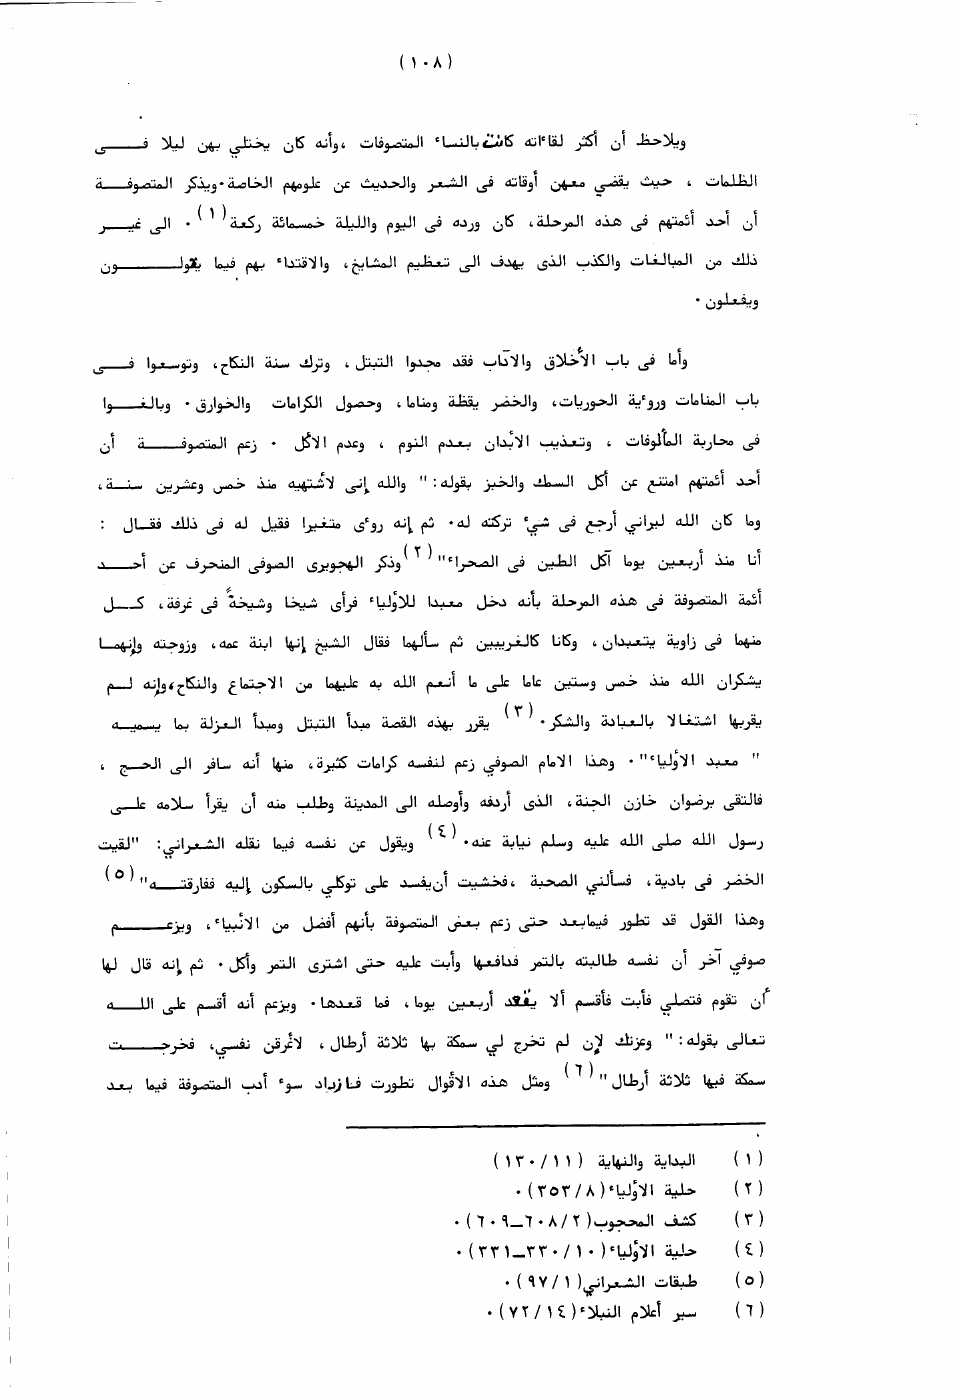 (١٠٨)
ويلاحظ أن أكثر لقاءاته كانت بالنساء المتصوفات ، وأنه كان يختلي بهن ليلا فـــــى
الظلمات ، حيث يقضي معهن أوقاته فى الشعر والحديث عن علومهم الخاصة ٠ ويذكر المتصوفــة
أن أحد أئمتهم فى هذه المرحلة، كان ورده فى اليوم والليلة خمسمائة ركعة(١) ٠ الى غيـــر
ذلك من المبالغات والكذب الذى يهدف الى تعظيم المشايخ، والاقتداء بهم فيما يقولـــــون
ويفعلون ٠
وأما فى باب الأخلاق والآداب فقد مجدوا التبتل ، وترك سنة النكاح، وتوسعوا فـــى
باب المنامات وروءية الحوريات، والخضر يقظة ومناما، وحصول الكرامات والخوارق ٠ وبالغـــوا
فى محاربة المألوفات ، وتعذيب الأبدان بعدم النوم ، وعدم الأكل ٠ زعم المتصوفــــة أن
أحد أئمتهم امتنع عن أكل السمك والخبز بقوله: " والله إنى لأشتهيه منذ خمس وعشرين سنــة،
وما كان الله ليراني أرجع فى شيء تركته له ٠ ثم إنه روءى متغيرا فقيل له فى ذلك فقــال :
أنا منذ أربعين يوما آكل الطين فى الصحراء"(٢) وذكر الهجويرى الصوفى المنحرف عن أحـــد
أئمة المتصوفة فى هذه المرحلة بأنه دخل معبدا للأولياء فرأى شيخا وشيخةً فى غرفة، كـــل
منهما فى زاوية يتعبدان، وكانا كالغريبين ثم سألهما فقال الشيخ إنها ابنة عمه، وزوجته وإنهمــا
يشكران الله منذ خمس وستين عاما على ما أنعم الله به عليهما من الاجتماع والنكاح، وإنه لــم
يقربها اشتغالا بالعبادة والشكر ٠(٣) يقرر بهذه القصة مبدأ التبتل ومبدأ العزلة بما يسميــه
" معبد الأولياء" ٠ وهذا الامام الصوفي زعم لنفسه كرامات كثيرة، منها أنه سافر الى الحــج ،
فالتقى برضوان خازن الجنة، الذى أردفه وأوصله الى المدينة وطلب منه أن يقرأ سلامه علــى
رسول الله صلى الله عليه وسلم نيابة عنه ٠(٤) ويقول عن نفسه فيما نقله الشعراني: "لقيت
الخضر فى بادية، فسألني الصحبة ، فخشيت أن يفسد على توكلي بالسكون إليه ففارقتــه"(٥)
وهذا القول قد تطور فيما بعد حتى زعم بعض المتصوفة بأنهم أفضل من الأنبياء، ويزعــــم
صوفي آخر أن نفسه طالبته بالتمر فدافعها وأبت عليه حتى اشترى التمر وأكل ٠ ثم إنه قال لها
أن تقوم فتصلي فأبت فأقسم ألا يقعد أربعين يوما، فما قعدها ٠ ويزعم أنه أقسم على اللـــه
تعالى بقوله: " وعزتك لإن لم تخرج لي سمكة بها ثلاثة أرطال، لأغرقن نفسي، فخرجـــت
سمكة فيها ثلاثة أرطال"(٦) ومثل هذه الأقوال تطورت فازداد سوء أدب المتصوفة فيما بعد
(١) البداية والنهاية (١٣٠/١١)
(٢) حلية الأولياء (٣٥٣/٨) ٠
(٣) كشف المحجوب (٦٠٨/٢ــ٦٠٩) ٠
(٤) حلية الأولياء (٣٣٠/١٠ــ٣٣١) ٠
(٥) طبقات الشعراني (٩٧/١) ٠
(٦) سير أعلام النبلاء (٧٢/١٤) ٠